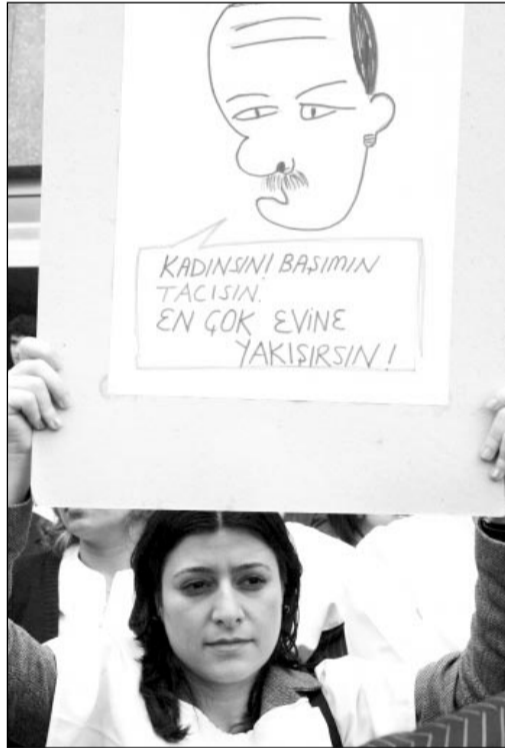 KADINSIN! BAŞIMIN
TACISIN.
EN ÇOK EVİNE
YAKIŞIRSIN!